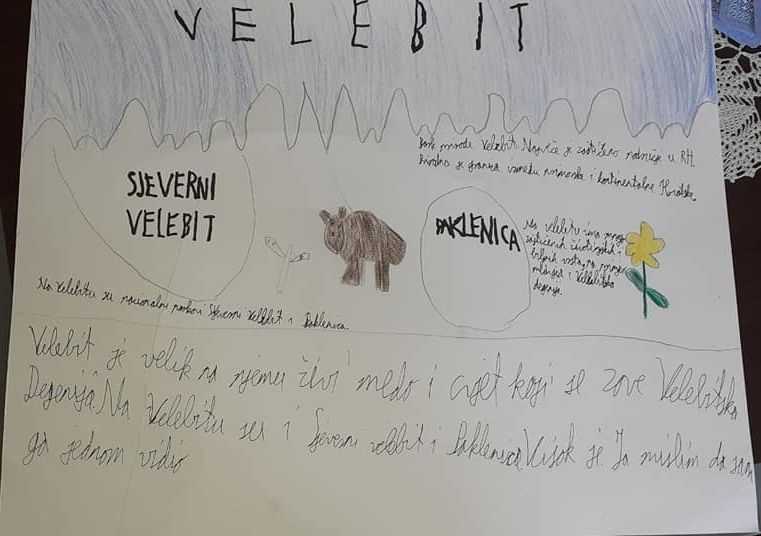 VELEBIT
Park prirode Velebit. Najveće je zaštićeno područje u RH.
je granica između primorske i kontinentalne Hrvatske.
SJEVERNI
VELEBIT
PAKLENICA
Na Velebitu ima mnogo
zaštićenih životinjskih i
biljnih vrsta, na primjer
i Velebitska
degenija.
Na Velebitu su nacionalni parkovi Sjeverni Velebit i Paklenica.
Velebit je velik na njemu živi medo i cvjet koji se zove Velebitska
Degenija. Na Velebitu su i Sjeverni velebit i Paklenica. Visok je. Ja mislim da sam
ga jednom vidio